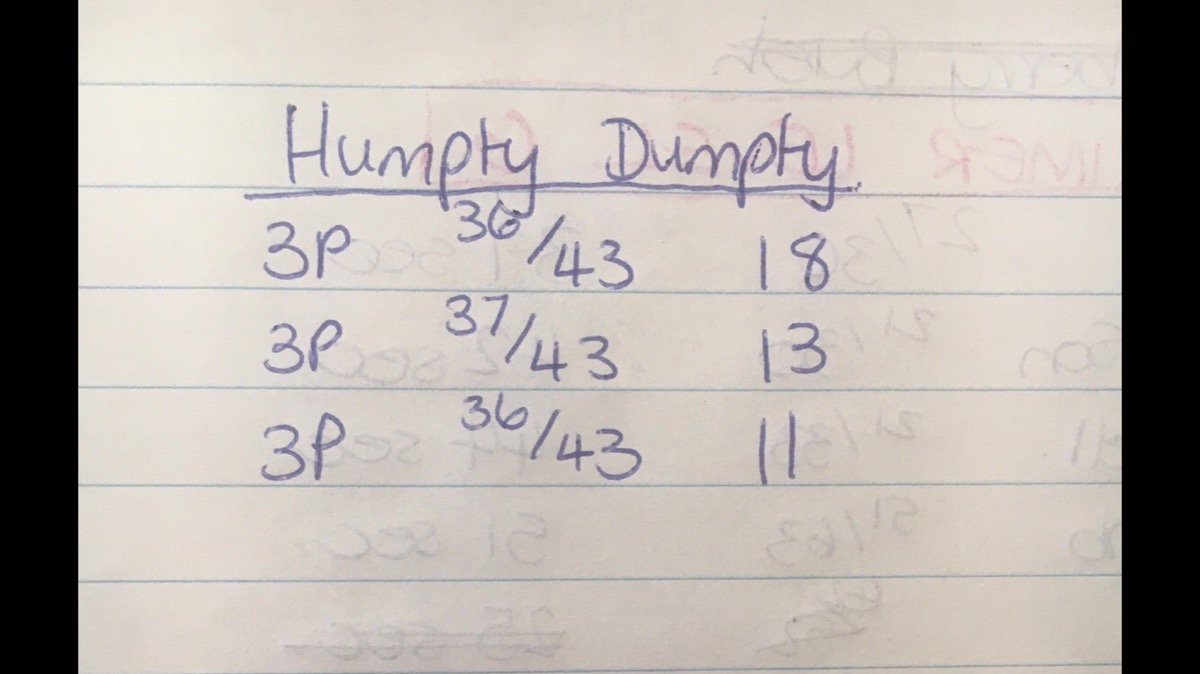 Humpty Dumpty
3P 36/43 18
3P 37/43 13
3P 36/43 11